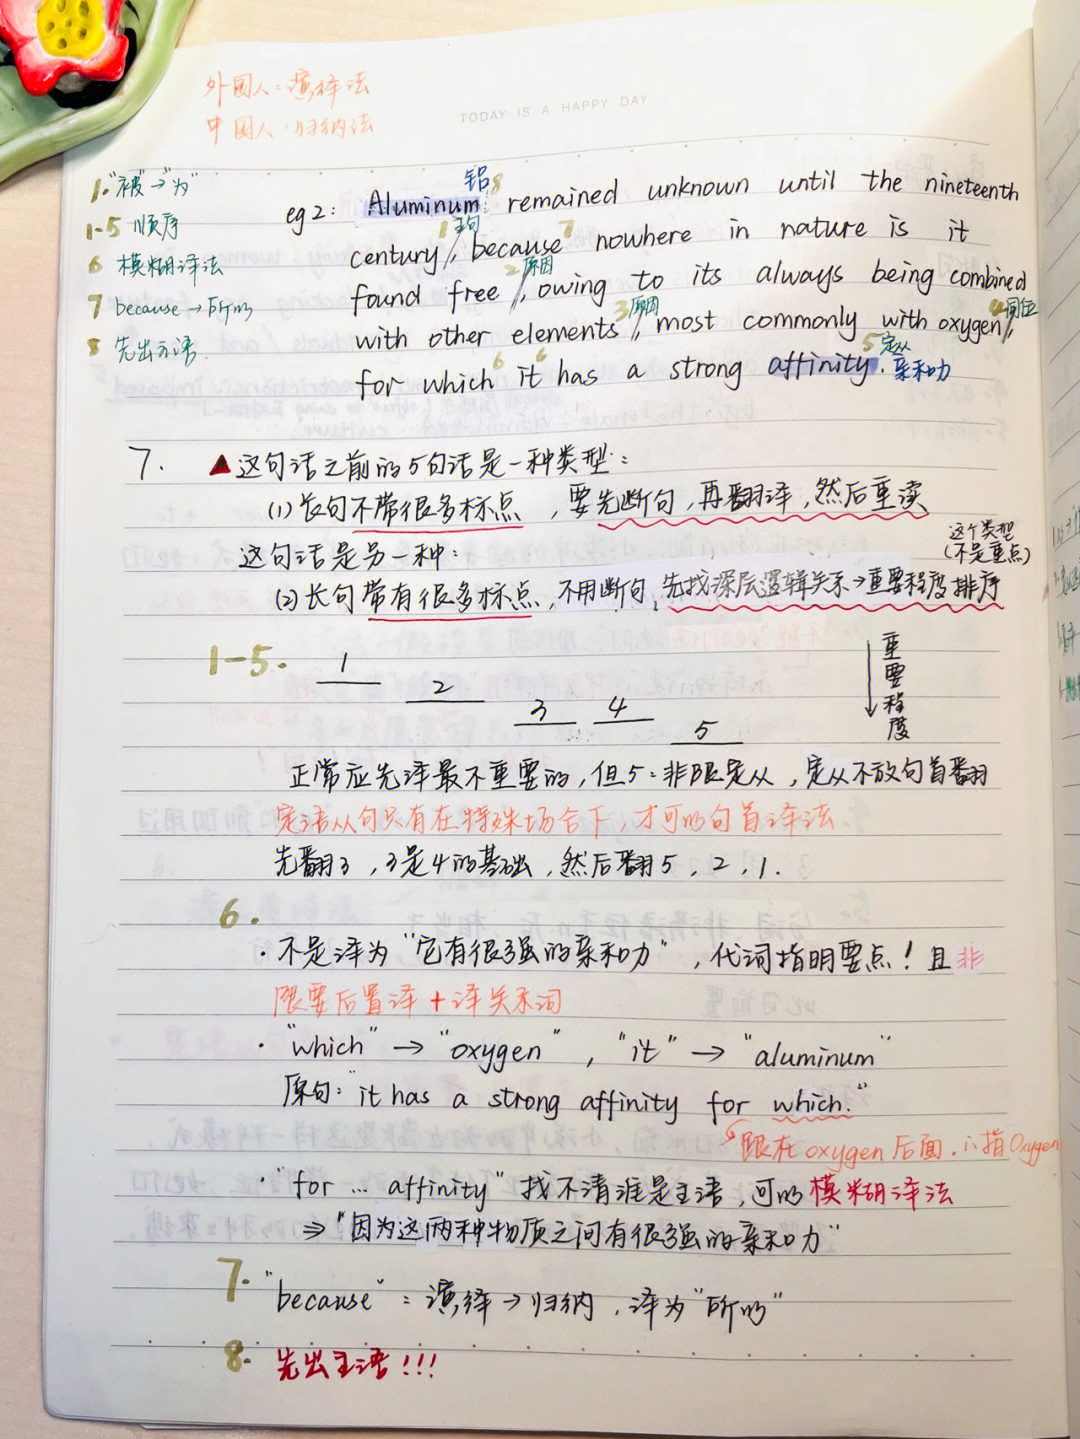 外国人：演绎法
中国人：归纳法
TODAY IS A HAPPY DAY
1."被"→"为"
1-5 顺序
6 模糊译法
7 because→所以
8 先出主语.
铝 8
eg 2: Aluminum remained unknown until the nineteenth
1 主句 7
century, / because nowhere in nature is it
2 原因
found free /, owing to its always being combined
3 原因 4 同位
with other elements, / most commonly with oxygen, /
6 6 5 定从
for which it has a strong affinity. 亲和力
7. ▲这句话之前的5句话是一种类型：
(1) 长句不带很多标点，要先断句，再翻译，然后重读
这句话是另一种：
这个类型
(不是重点)
(2) 长句带有很多标点，不用断句，先找深层逻辑关系→重要程度排序
1-5. 1
2
3 4
5
重要程度
正常应先译最不重要的，但5：非限定从，定从不放句首翻
定语从句只有在特殊场合下，才可以句首译法
先翻3，3是4的基础，然后翻5，2，1.
6.
·不是译为"它有很强的亲和力"，代词指明要点！且非
限要后置译+译关系词
·"which"→"oxygen"，"it"→"aluminum"
原句："it has a strong affinity for which."
跟在oxygen后面，∴指Oxygen
·"for … affinity"找不清谁是主语，可以模糊译法
⇒"因为这两种物质之间有很强的亲和力"
7. "because"：演绎→归纳，译为"所以"
8. 先出主语!!!